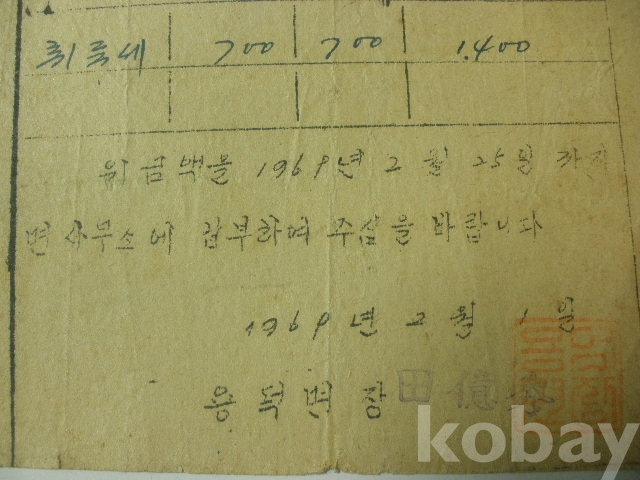 취득세 700 700 1.400
위 금액을 1969年 2월 25일 까지
면사무소에 납부하여 주심을 바랍니다
1969년 2월 1일
용덕면장 田億
kobay